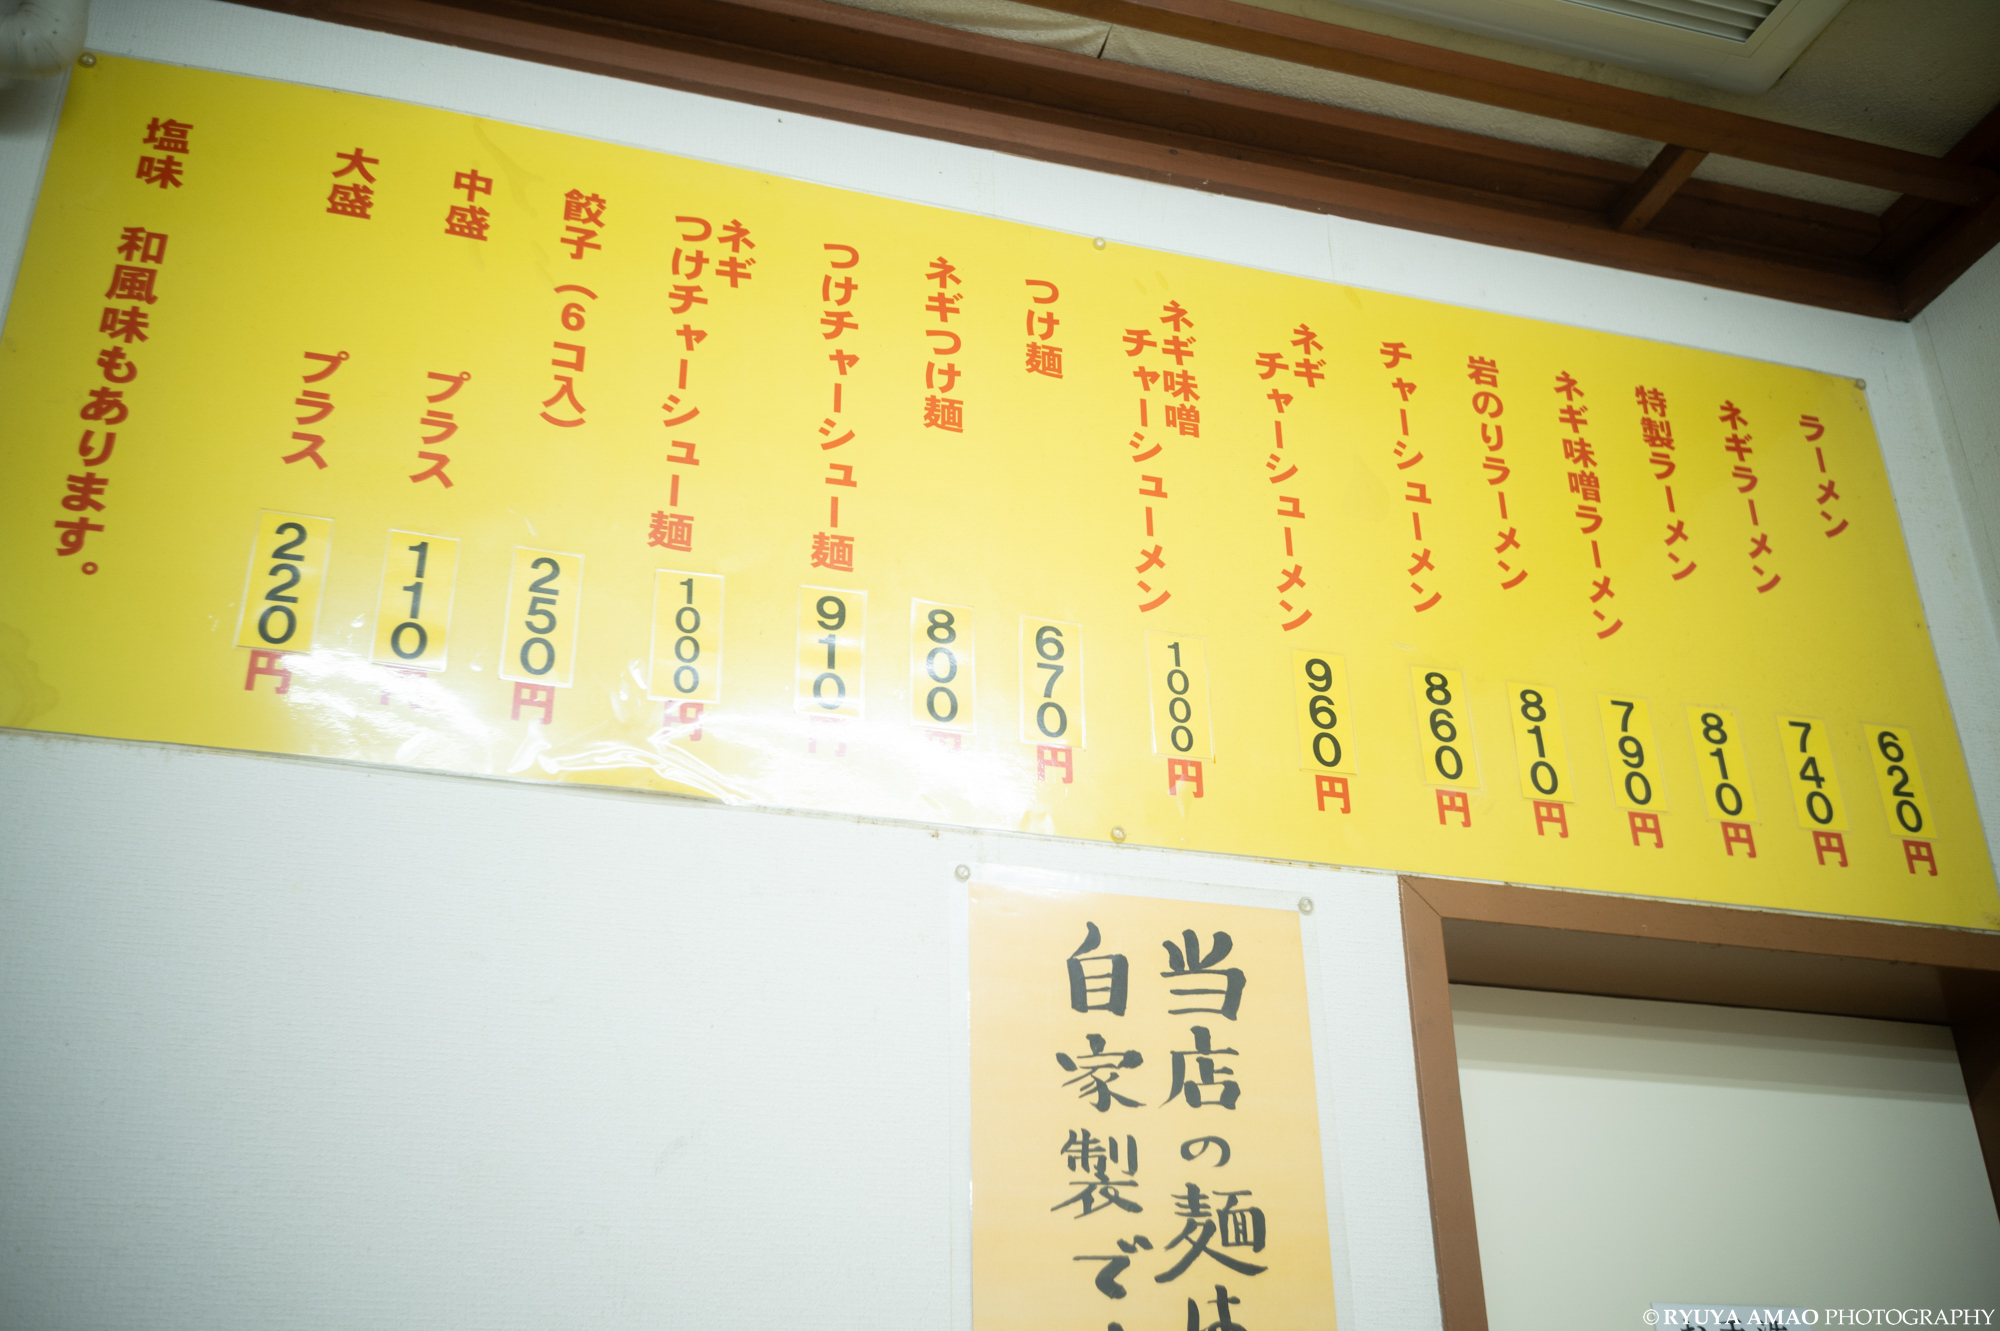 ラーメン 620円
ネギラーメン 740円
特製ラーメン 810円
ネギ味噌ラーメン 790円
岩のりラーメン 810円
チャーシューメン 860円
ネギ
チャーシューメン 960円
ネギ味噌
チャーシューメン 1000円
つけ麺 670円
ネギつけ麺 800円
つけチャーシュー麺 910円
ネギ
つけチャーシュー麺 1000円
餃子(6コ入) 250円
中盛 プラス 110円
大盛 プラス 220円
塩味 和風味もあります。
当店の麺は
自家製で
© RYUYA AMAO PHOTOGRAPHY